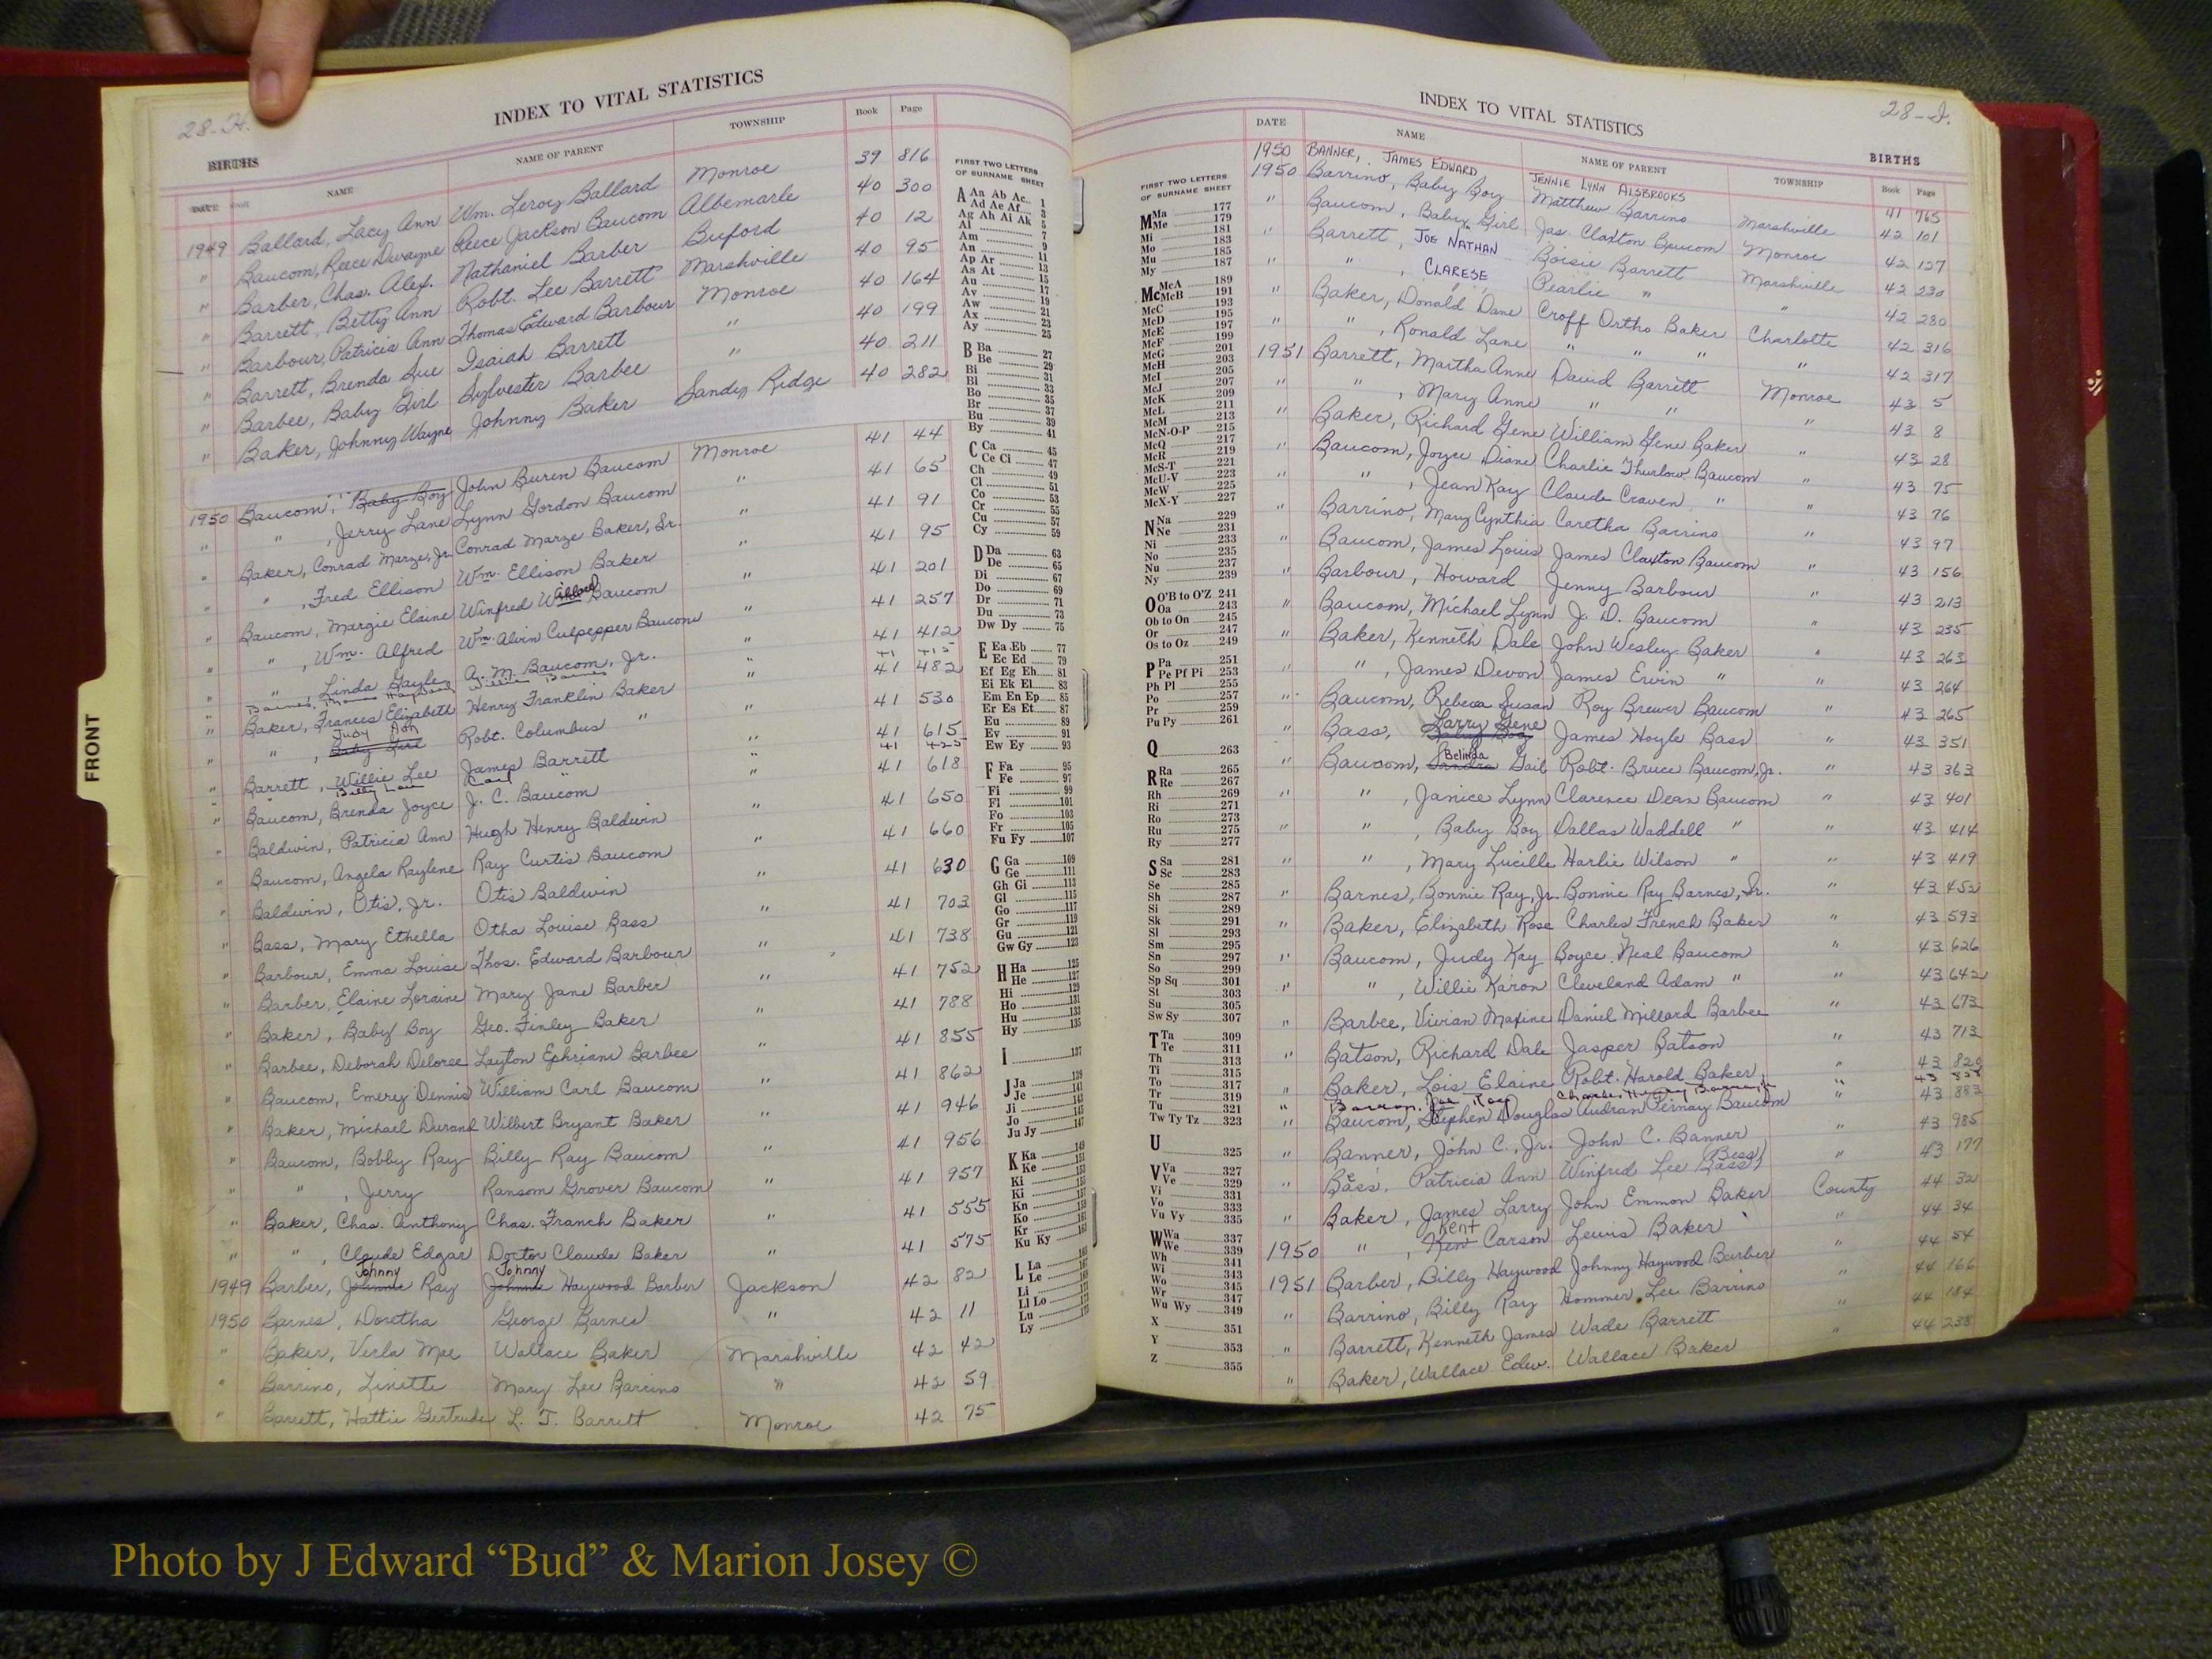 28-H.
INDEX TO VITAL STATISTICS
BIRTHS
DATE NAME NAME OF PARENT TOWNSHIP Book Page
1949 Ballard, Lacy Ann Wm. Leroy Ballard Monroe 39 816
" Baucom, Reece Dwayne Reece Jackson Baucom Albemarle 40 300
" Barber, Chas. Alex. Nathaniel Barber Buford 40 12
" Barrett, Betty Ann Robt. Lee Barrett Marshville 40 95
" Barbour, Patricia Ann Thomas Edward Barbour Monroe 40 164
" Barrett, Brenda Sue Isaiah Barrett " 40 199
" Barbee, Baby Girl Sylvester Barbee " 40 211
" Baker, Johnny Wayne Johnny Baker Sandy Ridge 40 282
1950 Baucom, Baby Boy John Buren Baucom Monroe 41 44
" " , Jerry Lane Lynn Gordon Baucom " 41 65
" Baker, Conrad Marze, Jr. Conrad Marze Baker, Sr. " 41 91
" " , Fred Ellison Wm. Ellison Baker " 41 95
" Baucom, Margie Elaine Winfred Baucom " 41 201
" " , Wm. Alfred Wm. Alvin Culpepper Baucom " 41 257
" " , Linda Gayle A. M. Baucom, Jr. " 41 412
" Baker, Frances Elizabeth Henry Franklin Baker " 41 482
" " , Baby Girl Judy Ann Robt. Columbus " " 41 530
" Barrett, Willie Lee James Barrett " 41 615
Billy Carl
" Baucom, Brenda Joyce J. C. Baucom " 41 618
" Baldwin, Patricia Ann Hugh Henry Baldwin " 41 650
" Baucom, Angela Raylene Ray Curtis Baucom " 41 660
" Baldwin, Otis, Jr. Otis Baldwin " 41 630
" Bass, Mary Ethella Otha Louise Bass " 41 703
" Barbour, Emma Louise Thos. Edward Barbour " 41 738
" Barber, Elaine Loraine Mary Jane Barber " 41 752
" Baker, Baby Boy Geo. Finley Baker " 41 788
" Barbee, Deborah Deloree Layton Ephriam Barbee " 41 855
" Baucom, Emery Dennis William Carl Baucom " 41 862
" Baker, Michael Durand Wilbert Bryant Baker " 41 946
" Baucom, Bobby Ray Billy Ray Baucom " 41 956
" " , Jerry Ransom Grover Baucom " 41 957
" Baker, Chas. Anthony Chas. Franch Baker " 41 555
" " , Claude Edgar Doctor Claude Baker " 41 575
1949 Barber, Johnnie Johnny Ray Johnnie Johnny Haywood Barber Jackson 42 82
1950 Barnes, Doretha George Barnes " 42 11
" Baker, Verla Mae Wallace Baker Marshville 42 42
" Barrino, Linette Mary Lee Barrino " 42 59
" Barrett, Hattie Gertrude L. T. Barrett Monroe 42 75
FIRST TWO LETTERS
OF SURNAME SHEET
A Aa Ab Ac 1
Ad Ae Af 3
Ag Ah Ai Ak 5
Al 7
Am 9
An 11
Ap Ar 13
As At 15
Au 17
Av 19
Aw 21
Ax 23
Ay 25
B Ba 27
Be 29
Bi 31
Bl 33
Bo 35
Br 37
Bu 39
By 41
C Ca 45
Ce Ci 47
Ch 49
Cl 51
Co 53
Cr 55
Cu 57
Cy 59
D Da 63
De 65
Di 67
Do 69
Dr 71
Du 73
Dw Dy 75
E Ea Eb 77
Ec Ed 79
Ef Eg Eh 81
Ei Ek El 83
Em En Ep 85
Er Es Et 87
Eu 89
Ev 91
Ew Ey 93
F Fa 95
Fe 97
Fi 99
Fl 101
Fo 103
Fr 105
Fu Fy 107
G Ga 109
Ge 111
Gh Gi 113
Gl 115
Go 117
Gr 119
Gu 121
Gw Gy 123
H Ha 125
He 127
Hi 129
Ho 131
Hu 133
Hy 135
I 137
J Ja 139
Je 141
Ji 143
Jo 145
Ju Jy 147
K Ka 149
Ke 151
Ki
Ki
Kn
Ko
Kr
Ku Ky
L La
Le
Li
Ll Lo
Lu
Ly
FRONT
28-I.
INDEX TO VITAL STATISTICS
BIRTHS
DATE NAME NAME OF PARENT TOWNSHIP Book Page
1950 BANNER, JAMES EDWARD JENNIE LYNN ALSBROOKS 41 765
1950 Barrino, Baby Boy Matthew Barrino Marshville 42 101
" Baucom, Baby Girl Jas. Claxton Baucom Monroe 42 127
" Barrett, JOE NATHAN Boisie Barrett Marshville 42 230
" " , CLARESE Pearlie " " 42 280
" Baker, Donald Dane Croff Ortho Baker Charlotte 42 316
" " , Ronald Lane " " " " 42 317
1951 Barrett, Martha Anne David Barrett Monroe 43 5
" " , Mary Anne " " " 43 8
" Baker, Richard Gene William Gene Baker " 43 28
" Baucom, Joyce Diane Charlie Thurlow Baucom " 43 75
" " , Jean Kay Claude Craven " " 43 76
" Barrino, Mary Cynthia Caretha Barrino " 43 97
" Baucom, James Louis James Claxton Baucom " 43 156
" Barbour, Howard Jenny Barbour " 43 213
" Baucom, Michael Lynn J. D. Baucom " 43 235
" Baker, Kenneth Dale John Wesley Baker " 43 263
" " , James Devon James Ervin " " 43 264
" Baucom, Rebeca Susan Roy Brewer Baucom " 43 265
" Bass, Baby Boy Larry Gene James Hoyle Bass " 43 351
" Baucom, Sandra Belinda Gail Robt. Bruce Baucom, Jr. " 43 363
" " , Janice Lynn Clarence Dean Baucom " 43 401
" " , Baby Boy Dallas Waddell " " 43 414
" " , Mary Lucille Harlie Wilson " " 43 419
" Barnes, Bonnie Ray, Jr. Bonnie Ray Barnes, Sr. " 43 452
" Baker, Elizabeth Rose Charles French Baker " 43 593
" Baucom, Judy Kay Boyce Neal Baucom " 43 626
" " , Willie Karon Cleveland Adam " " 43 642
" Barbee, Vivian Maxine Daniel Millard Barbee " 43 673
" Batson, Richard Dale Jasper Batson " 43 713
" Baker, Lois Elaine Robt. Harold Baker "
" Joe Ray Charles
" Baucom, Stephen Douglas Audran Pernay Baucom " 43 883
" Banner, John C., Jr. John C. Banner " 43 985
" Bass, Patricia Ann Winfred Lee Bass (Bess) " 43 177
" Baker, James Larry John Emmon Baker County 44 32
1950 " , Ken Kent Carson Lewis Baker " 44 34
1951 Barber, Billy Haywood Johnny Haywood Barber " 44 54
" Barrino, Billy Ray Hommer Lee Barrino " 44 166
" Barrett, Kenneth James Wade Barrett " 44 184
" Baker, Wallace Edw. Wallace Baker " 44 238
FIRST TWO LETTERS
OF SURNAME SHEET
M Ma 177
Me 179
Mi 181
Mo 183
Mu 185
My 187
Mc McA 189
McB 191
McC 193
McD 195
McE 197
McF 199
McG 201
McH 203
McI 205
McJ 207
McK 209
McL 211
McM 213
McN-O-P 215
McQ 217
McR 219
McS-T 221
McU-V 223
McW 225
McX-Y 227
N Na 229
Ne 231
Ni 233
No 235
Nu 237
Ny 239
O O'B to O'Z 241
Oa 243
Ob to On 245
Or 247
Os to Oz 249
P Pa 251
Pe Pf Pi 253
Ph Pl 255
Po 257
Pr 259
Pu Py 261
Q 263
R Ra 265
Re 267
Rh 269
Ri 271
Ro 273
Ru 275
Ry 277
S Sa 281
Sc 283
Se 285
Sh 287
Si 289
Sk 291
Sl 293
Sm 295
Sn 297
So 299
Sp Sq 301
St 303
Su 305
Sw Sy 307
T Ta 309
Te 311
Th 313
Ti 315
To 317
Tr 319
Tu 321
Tw Ty Tz 323
U 325
V Va 327
Ve 329
Vi 331
Vo 333
Vu Vy 335
W Wa 337
We 339
Wh 341
Wi 343
Wo 345
Wr 347
Wu Wy 349
X 351
Y 353
Z 355
Photo by J Edward “Bud” & Marion Josey ©